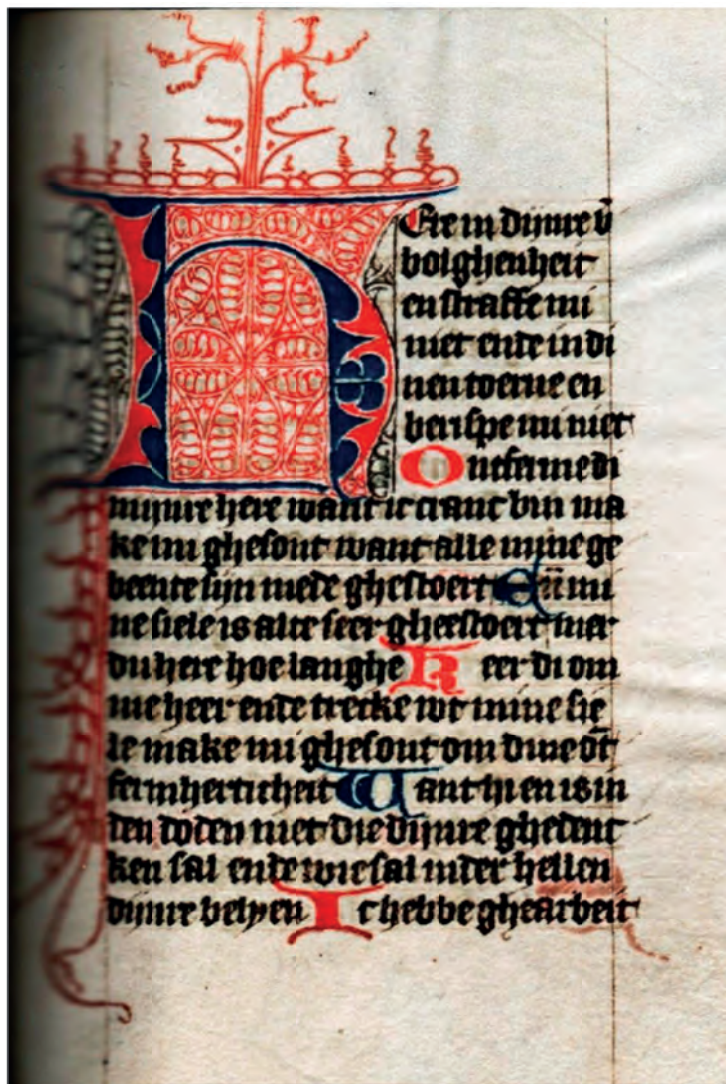 Here in dijnre v̄
bolghenheit
en straffe mi
niet ende in di
nen toerne en
berispe mi niet
Ontferme di
mijnre here want ic cranc bin ma
ke mi ghesont want alle mijne ge
beente sijn mede ghestoert Eñ mi
ne siele is alte seer ghestoert mer
du here hoe langhe Keer di om
me heer ende trecke wt mine sie
le make mi ghesont om dine ōt
fermherticheit Want hi en is in
den doden niet die dijnre ghedenc
ken sal ende wie sal inder hellen
dijnre belyen Ic hebbe ghearbeit